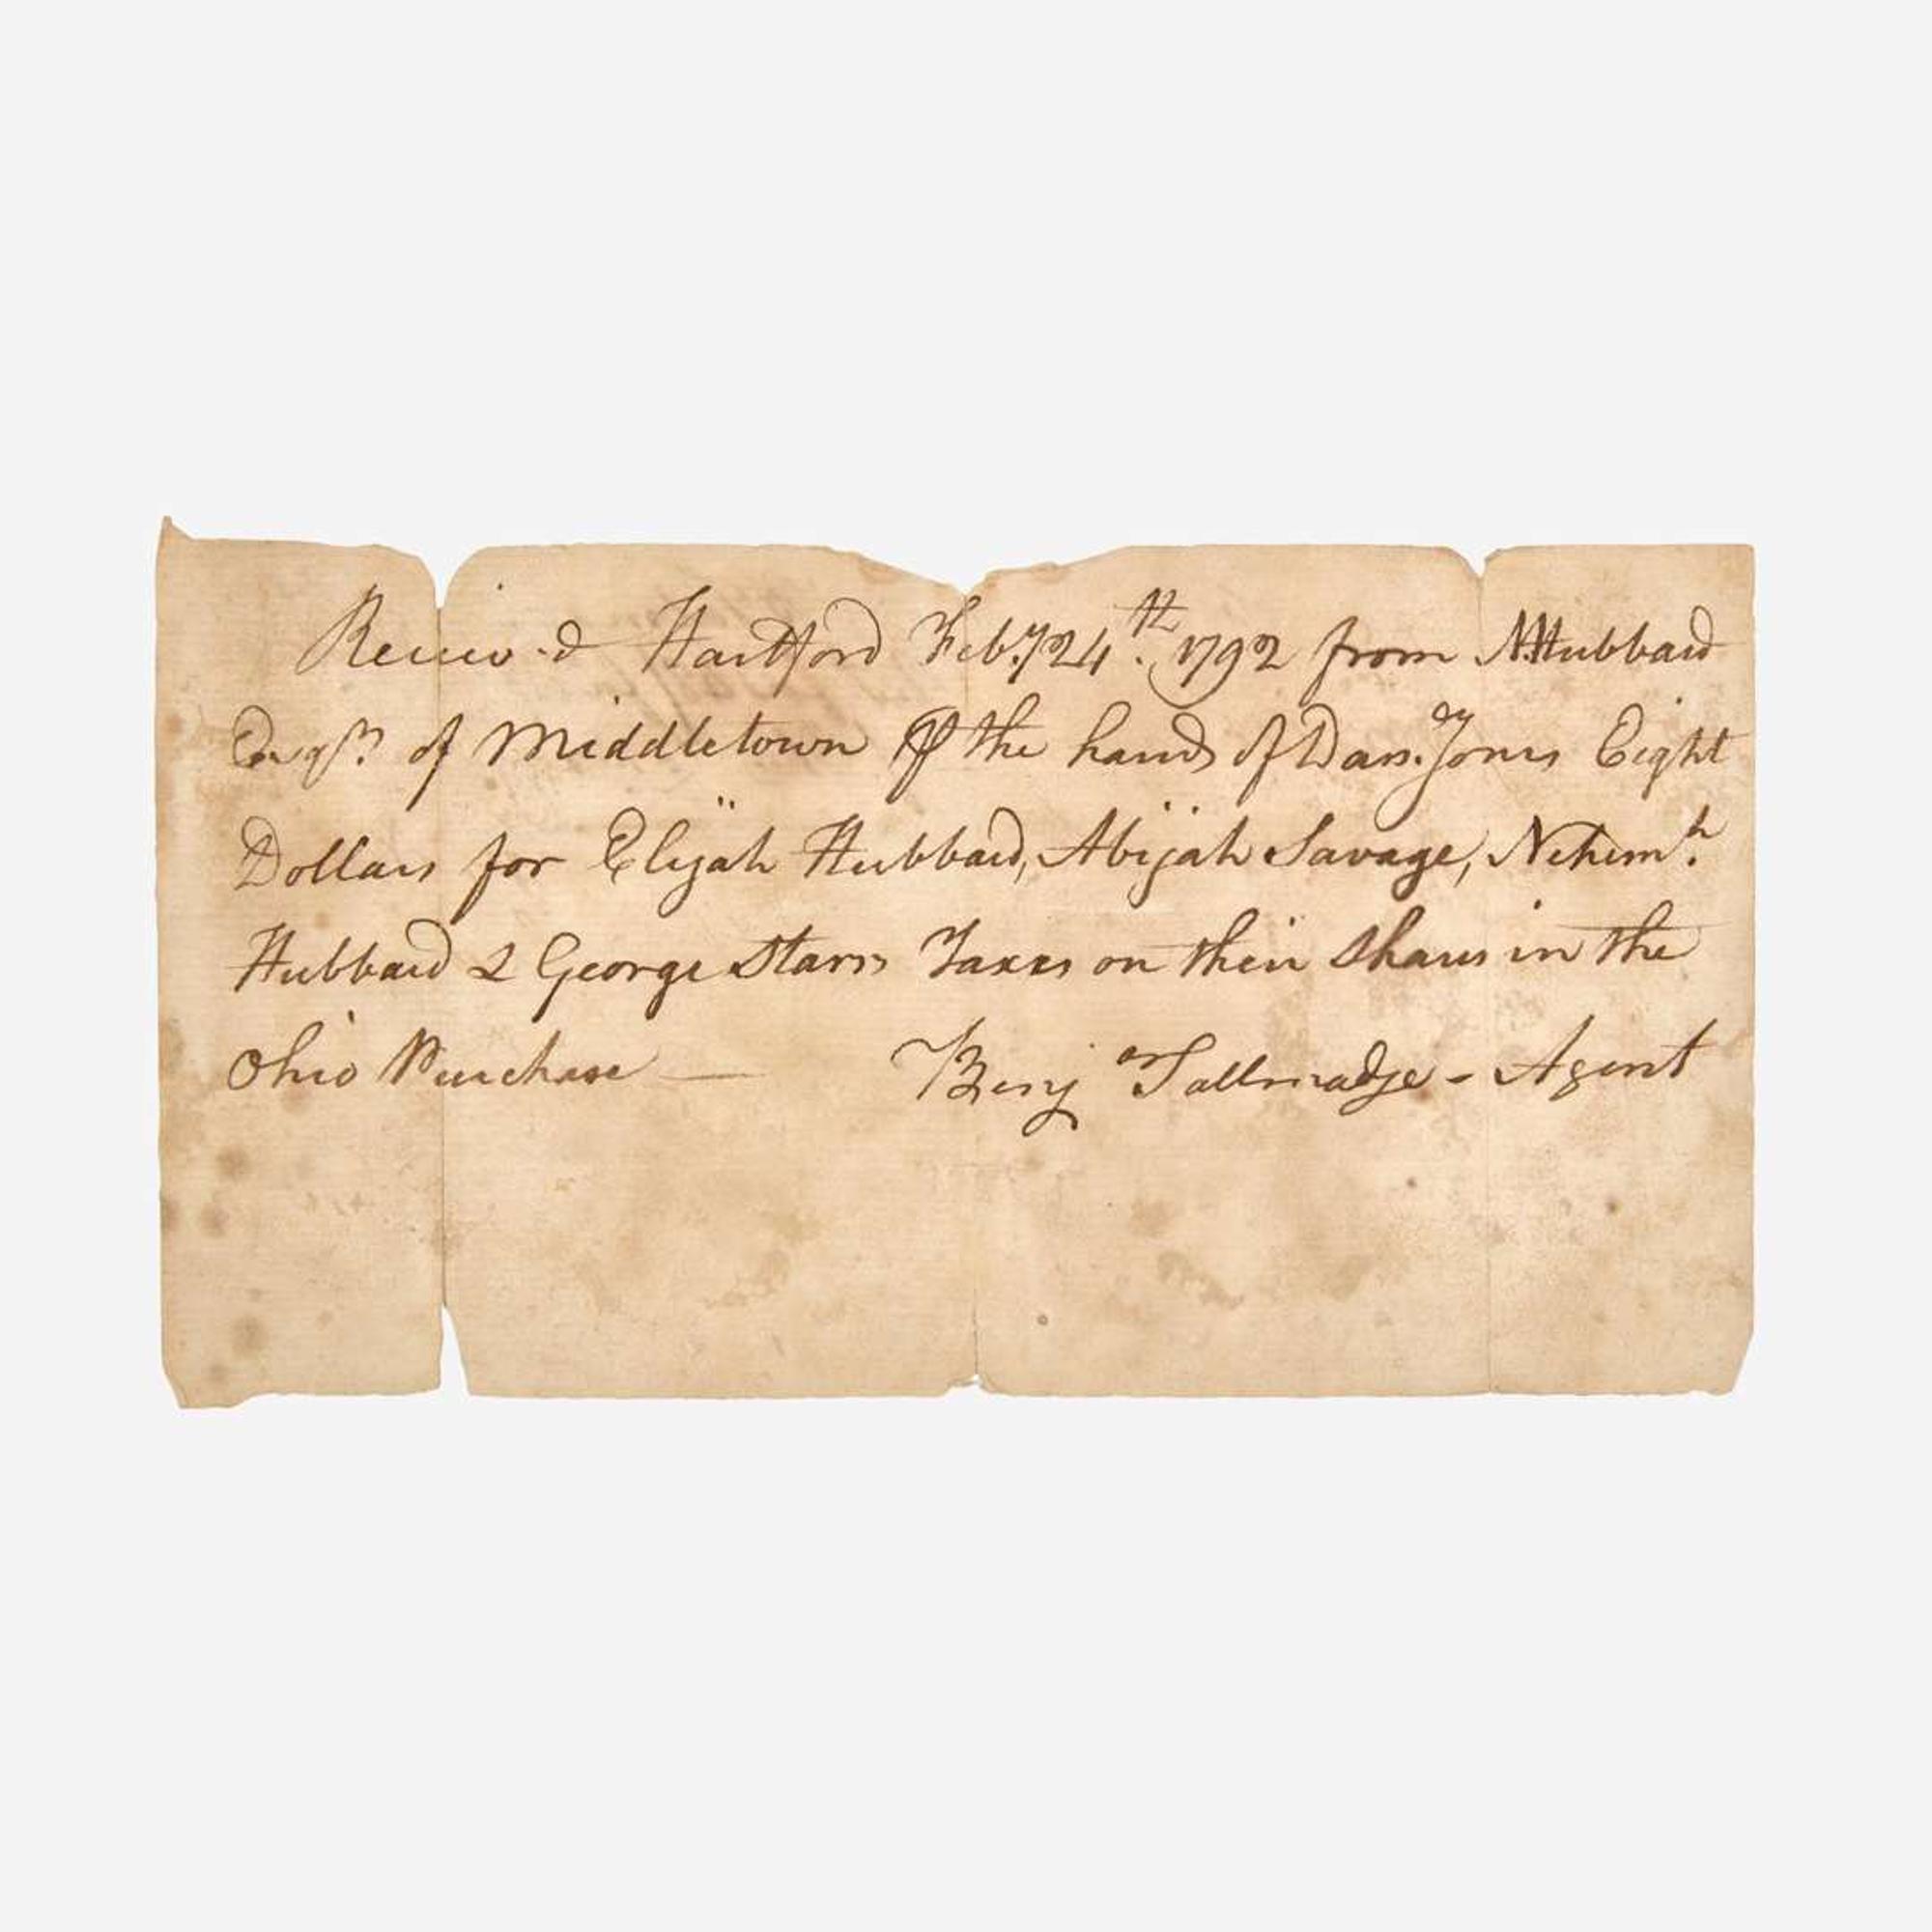 Receiv.d Hartford Feb.y 24th. 1792 from N. Hubbard
Esqr. of Middletown ⅌ the hands of Dan. Jones Eight
Dollars for Elijah Hubbard, Abijah Savage, Nehemh.
Hubbard & George Starrs Taxes on their Shares in the
Ohio Purchase —
Benj Tallmadge - Agent